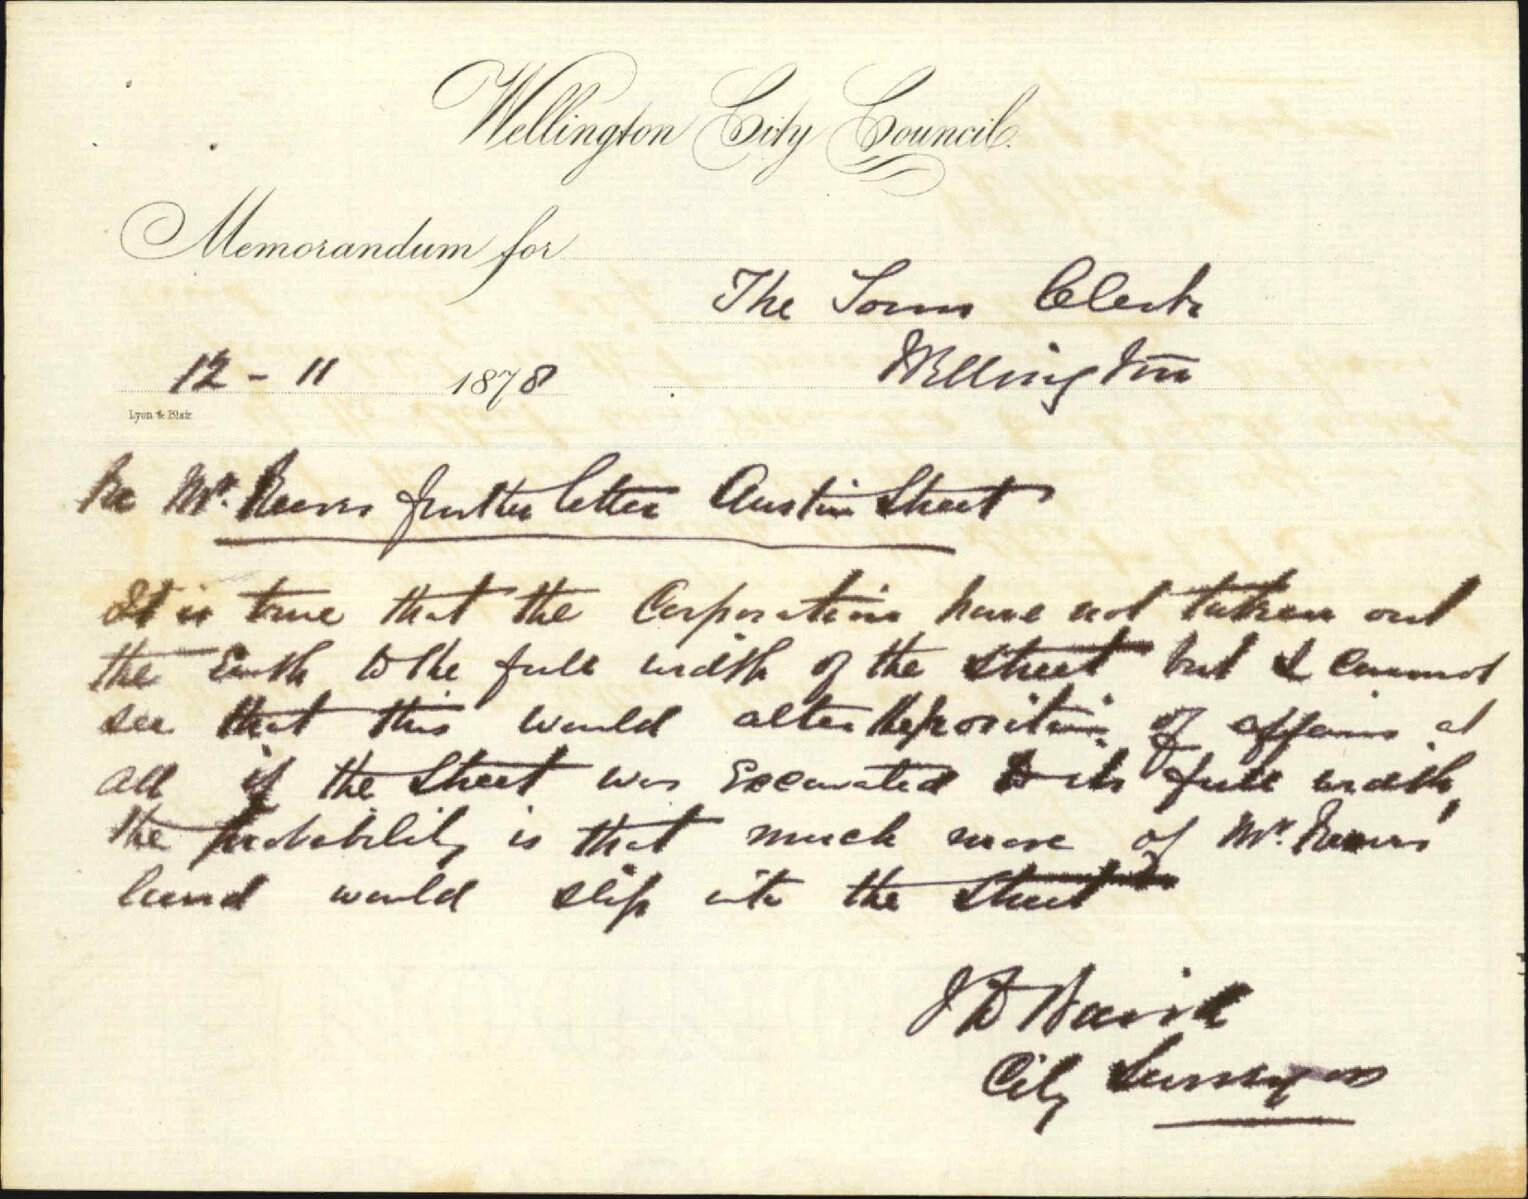 Wellington City Council.
Memorandum for
The Town Clerk
Wellington
12 - 11 1878
Lyon & Blair
Re Mr. Reeves further letter Austin Street
It is true that the Corporation have not taken out
the Earth to the full width of the Street but I cannot
see that this would alter the position of affairs at
all if the Street was Excavated to its full width,
the probability is that much more of Mr. Reeves'
land would slip into the Street
J D Baird
City Surveyor